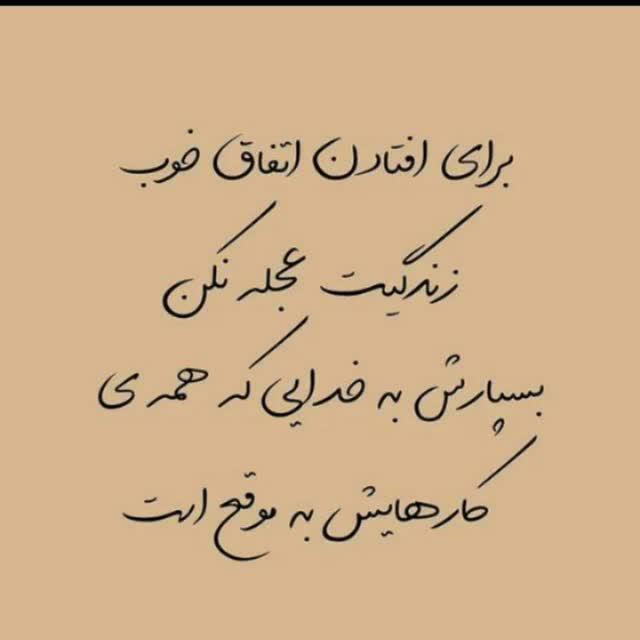 برای افتادن اتفاق خوب
زندگیت عجله نکن
بسپارش به خدایی که همه ی
کارهایش به موقع است